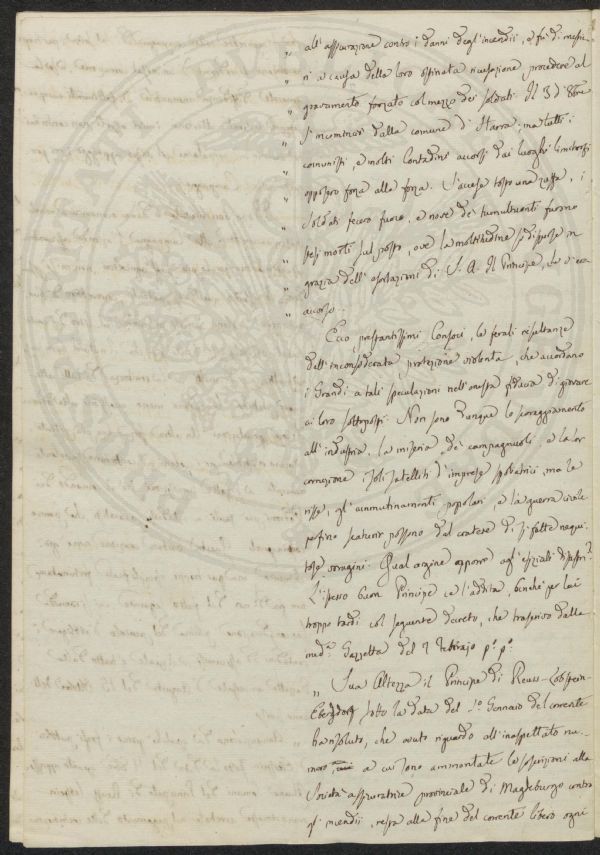 „ all'assicurazione contro i danni degl'incendii, e fu di mestie-
„ ri a causa della loro ostinata ricusazione procedere al
„ gravamento forzato col mezzo dei soldati. Il 3 d'8bre
„ s'incominciò dalla comune d'Harra; ma tutti i
„ comunisti, e molti Contadini accorsi dai luoghi limitrofi
„ opposero forza alla forza. S'accese tosto una zuffa, i
„ soldati fecero fuoco, e nove de' tumultuanti furono
„ stesi morti sul posto, ove la moltitudine si disperse in
„ grazia dell'esortazioni di S. A. Il Principe, che v'era
„ accorso.
Ecco prestantissimi Consoci, le ferali resultanze
dell'inconsiderata protezione violenta, che accordano
i Grandi a tali speculazioni nell'onesta fiducia di giovare
ai loro sottoposti. Non sono dunque lo scoraggiamento
all'industria, la miseria de' campagnuoli, e la lor
corruzione i soli satelliti d'imprese spogliatrici, ma le
risse, gli ammutinamenti popolari, e la guerra civile
perfino scaturir possono dal cratere di sì fatte nequi-
tose voragini. Qual argine opporre agl'esiziali disastri?
L'istesso buon Principe ce l'addita, benchè per lui
troppo tardi col seguente decreto, che trascrivo dalla
med.ª Gazzetta del 7 Febbrajo p.º p.º
„ Sua Altezza il Principe di Reuss-Lobstein-
Ebersdorf sotto la data del 1.º Gennaio del corrente
ha risoluto, che avuto riguardo all'inaspettato nu-
mero, a cui sono ammontate le soscrizioni alla
Società assicuratrice provinciale di Magdeburgo contro
gl'incendii, resta alla fine del corrente libero ogni